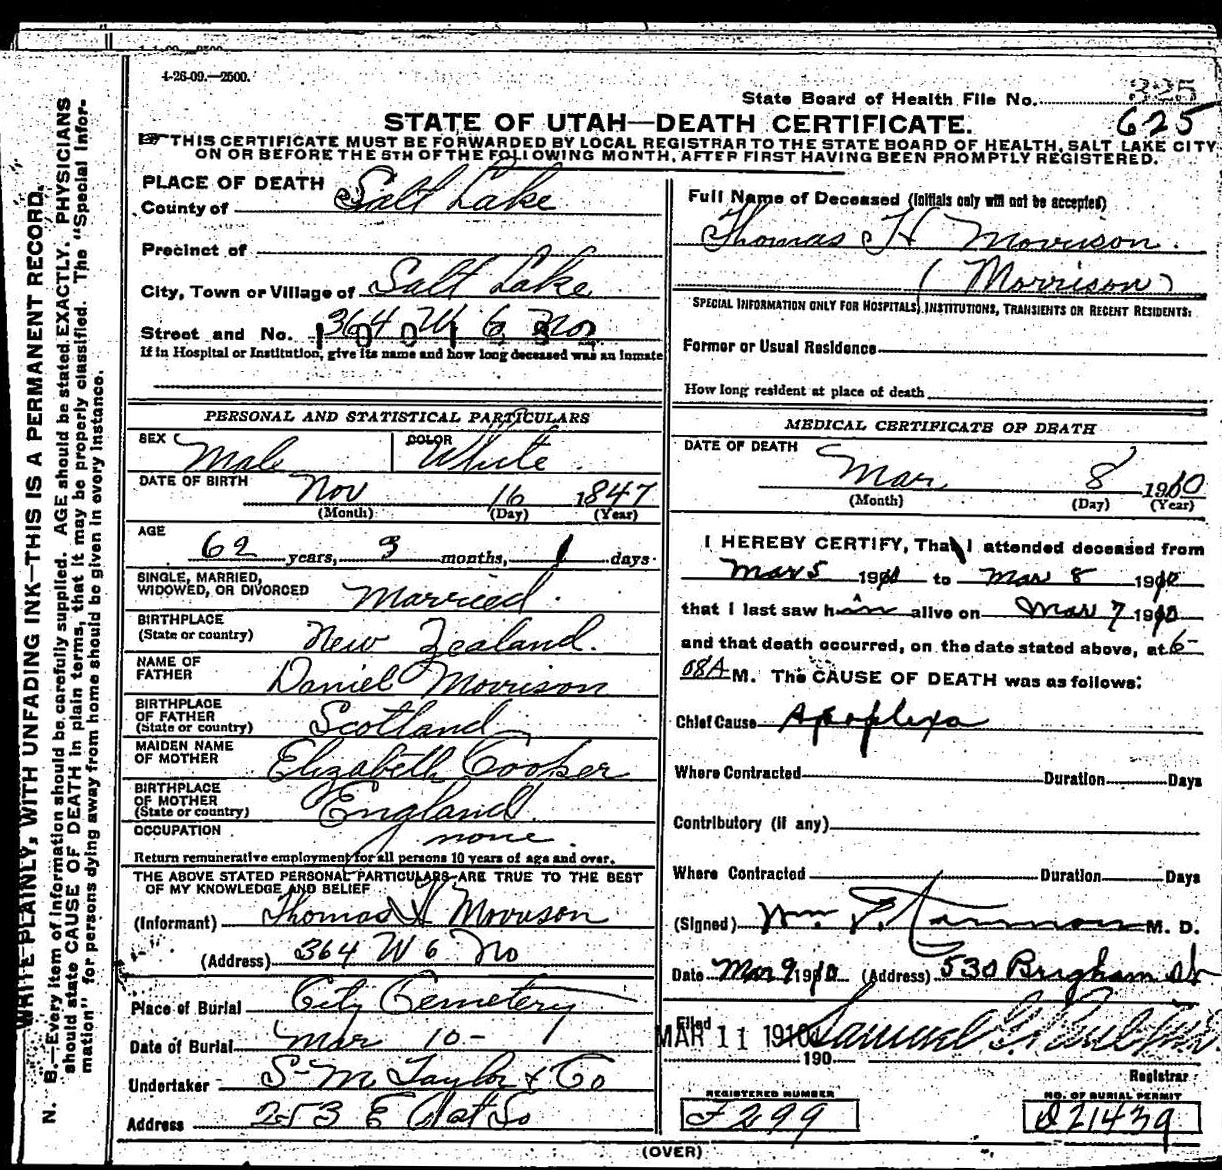 4-26-09.—2500.
State Board of Health File No. 325
625
STATE OF UTAH—DEATH CERTIFICATE.
THIS CERTIFICATE MUST BE FORWARDED BY LOCAL REGISTRAR TO THE STATE BOARD OF HEALTH, SALT LAKE CITY
ON OR BEFORE THE 5TH OF THE FOLLOWING MONTH, AFTER FIRST HAVING BEEN PROMPTLY REGISTERED.
WRITE PLAINLY, WITH UNFADING INK—THIS IS A PERMANENT RECORD.
N. B.—Every item of information should be carefully supplied. AGE should be stated EXACTLY. PHYSICIANS
should state CAUSE OF DEATH in plain terms, that it may be properly classified. The "Special Infor-
mation" for persons dying away from home should be given in every instance.
PLACE OF DEATH
County of Salt Lake
Precinct of
City, Town or Village of Salt Lake
Street and No. 364 W 6 No
If in Hospital or Institution, give its name and how long deceased was an inmate
PERSONAL AND STATISTICAL PARTICULARS
SEX Male COLOR White
DATE OF BIRTH Nov 16 1847
(Month) (Day) (Year)
AGE
62 years, 3 months, 1 days
SINGLE, MARRIED,
WIDOWED, OR DIVORCED Married
BIRTHPLACE
(State or country) New Zealand.
NAME OF
FATHER Daniel Morrison
BIRTHPLACE
OF FATHER
(State or country) Scotland
MAIDEN NAME
OF MOTHER Elizabeth Cooper
BIRTHPLACE
OF MOTHER
(State or country) England
OCCUPATION none
Return remunerative employment for all persons 10 years of age and over.
THE ABOVE STATED PERSONAL PARTICULARS ARE TRUE TO THE BEST
OF MY KNOWLEDGE AND BELIEF
(Informant) Thomas H Morrison
(Address) 364 W 6 No
Place of Burial City Cemetery
Date of Burial Mar 10-
Undertaker S. M. Taylor & Co
Address 253 E So
Full Name of Deceased (Initials only will not be accepted)
Thomas H Morrison.
(Morrison)
SPECIAL INFORMATION ONLY FOR HOSPITALS, INSTITUTIONS, TRANSIENTS OR RECENT RESIDENTS:
Former or Usual Residence
How long resident at place of death
MEDICAL CERTIFICATE OF DEATH
DATE OF DEATH
Mar 8 1910
(Month) (Day) (Year)
I HEREBY CERTIFY, That I attended deceased from
Mar 5 1910 to Mar 8 1910
that I last saw him alive on Mar 7 1910
and that death occurred, on the date stated above, at 6-
08A M. The CAUSE OF DEATH was as follows:
Chief Cause Apoplexa
Where Contracted Duration Days
Contributory (if any)
Where Contracted Duration Days
(Signed) Wm. M. D.
Date Mar 9 1910 (Address) 530 Brigham St
Filed
MAR 11 1910 Samuel G. Paul
190
Registrar
REGISTERED NUMBER
299
NO. OF BURIAL PERMIT
21439
(OVER)